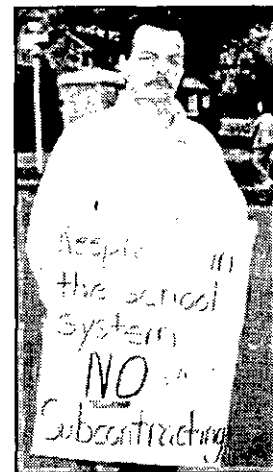 in
the school
system
NO
Subcontracting